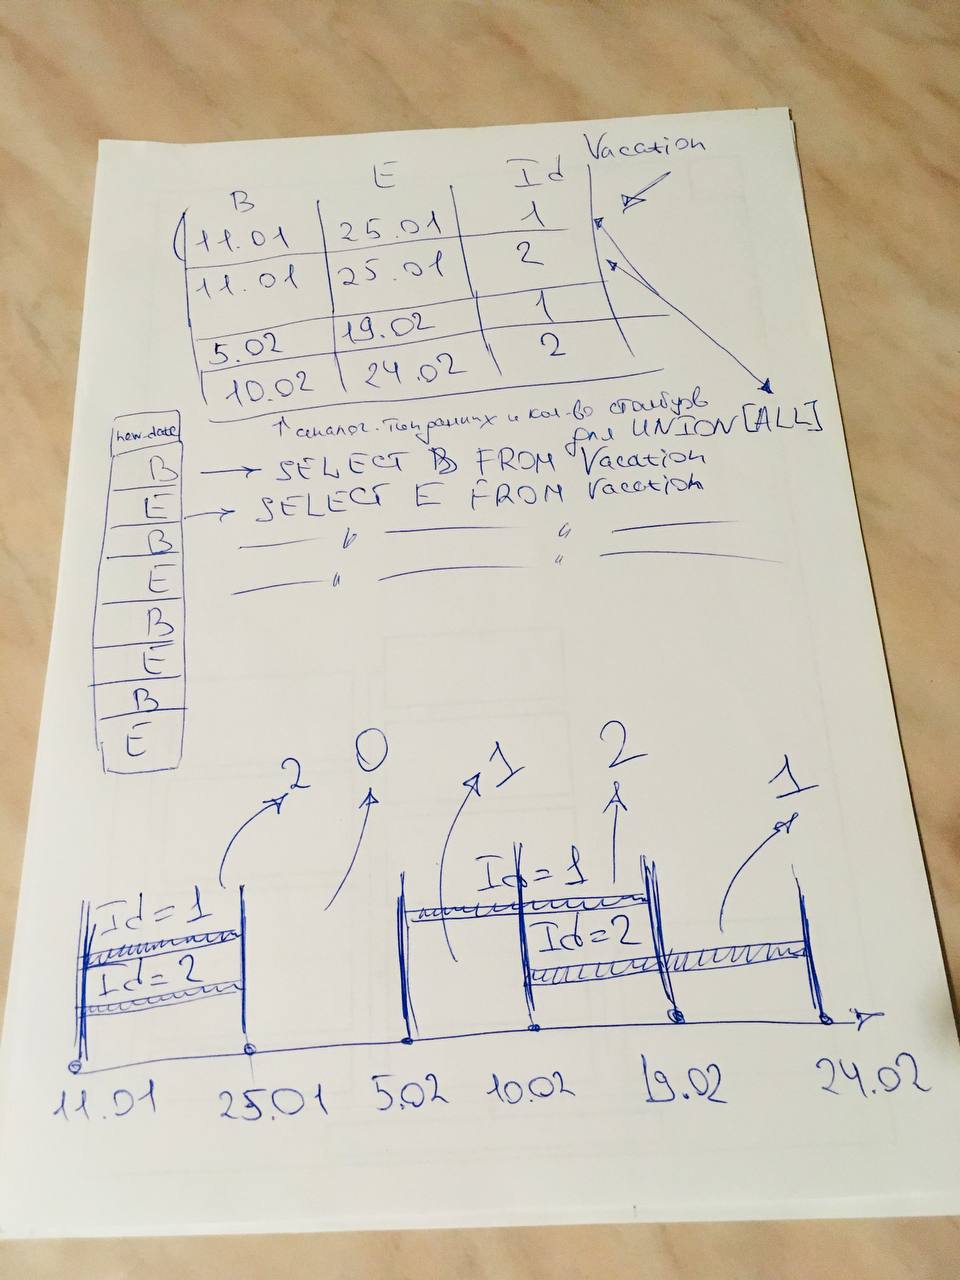 Vacation
B E Id
11.01 25.01 1
11.01 25.01 2
5.02 19.02 1
10.02 24.02 2
↑ аналог. тип данных и кол-во столбцов
для UNION [ALL]
new-date
B → SELECT B FROM Vacation
E → SELECT E FROM Vacation
B — " — " —
E — " — " —
B
E
B
E
2 0 1 2 1
Id=1 Id=1
Id=2 Id=2
11.01 25.01 5.02 10.02 19.02 24.02